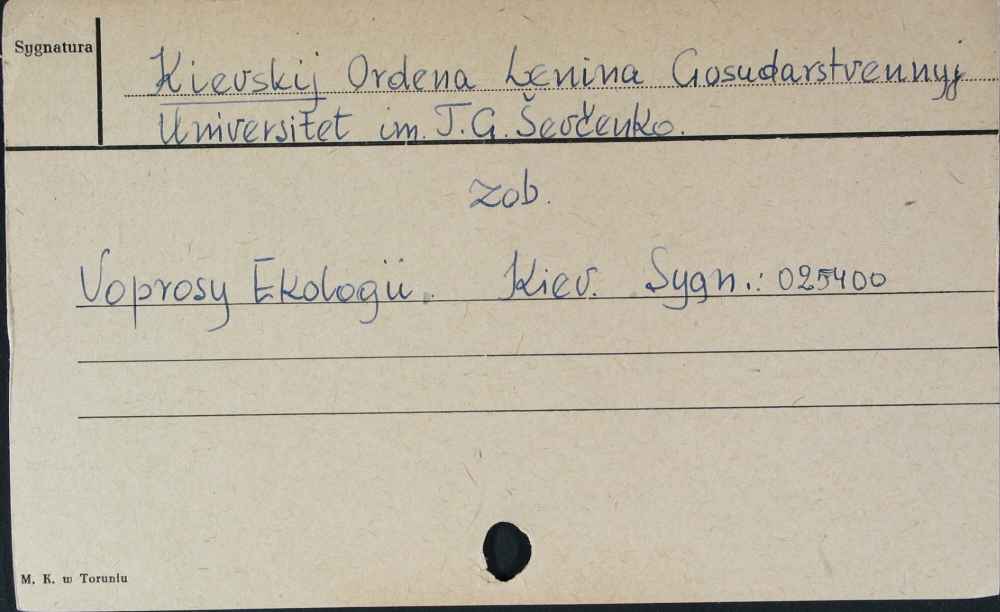 Sygnatura
Kievskij Ordena Lenina Gosudarstvennyj
Universitet im. T.G. Ševčenko.
zob.
Voprosy Ekologii. Kiev. Sygn.: 025400
M. K. w Toruniu